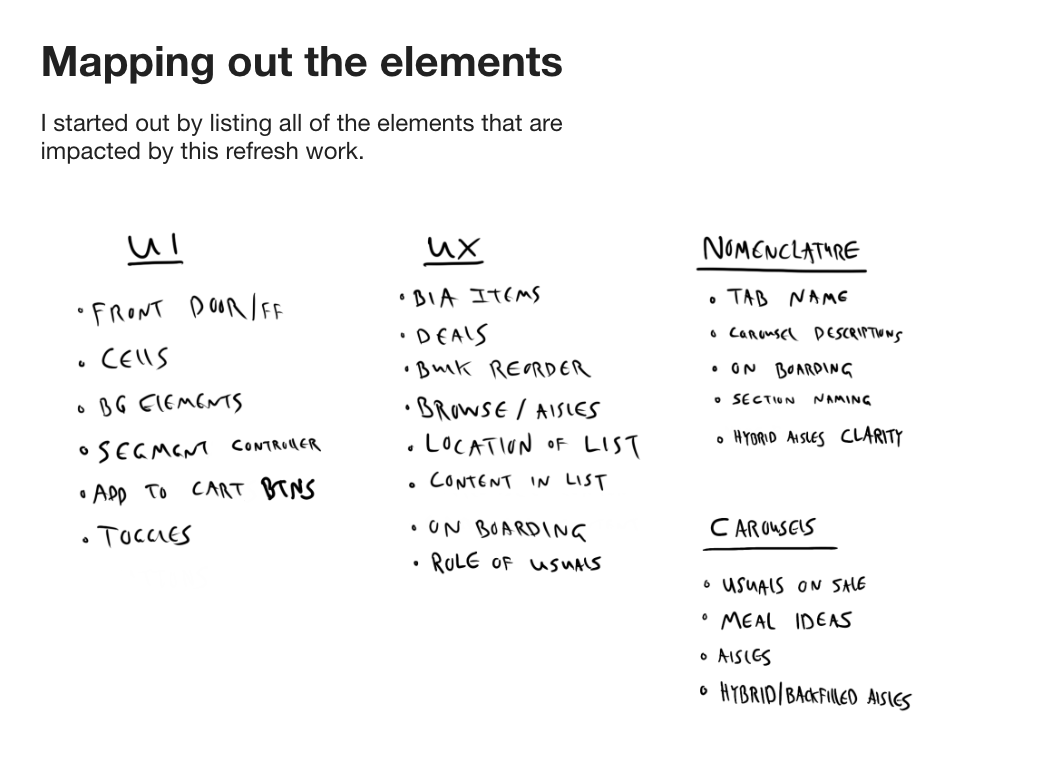 Mapping out the elements
I started out by listing all of the elements that are
impacted by this refresh work.
UI
• FRONT DOOR/FF
• CELLS
• BG ELEMENTS
• SEGMENT CONTROLLER
• ADD TO CART BTNS
• TOGGLES
UX
• BIA ITEMS
• DEALS
• BULK REORDER
• BROWSE / AISLES
• LOCATION OF LIST
• CONTENT IN LIST
• ON BOARDING
• ROLE OF USUALS
NOMENCLATURE
• TAB NAME
• CAROUSEL DESCRIPTIONS
• ON BOARDING
• SECTION NAMING
• HYBRID AISLES CLARITY
CAROUSELS
• USUALS ON SALE
• MEAL IDEAS
• AISLES
• HYBRID/BACKFILLED AISLES